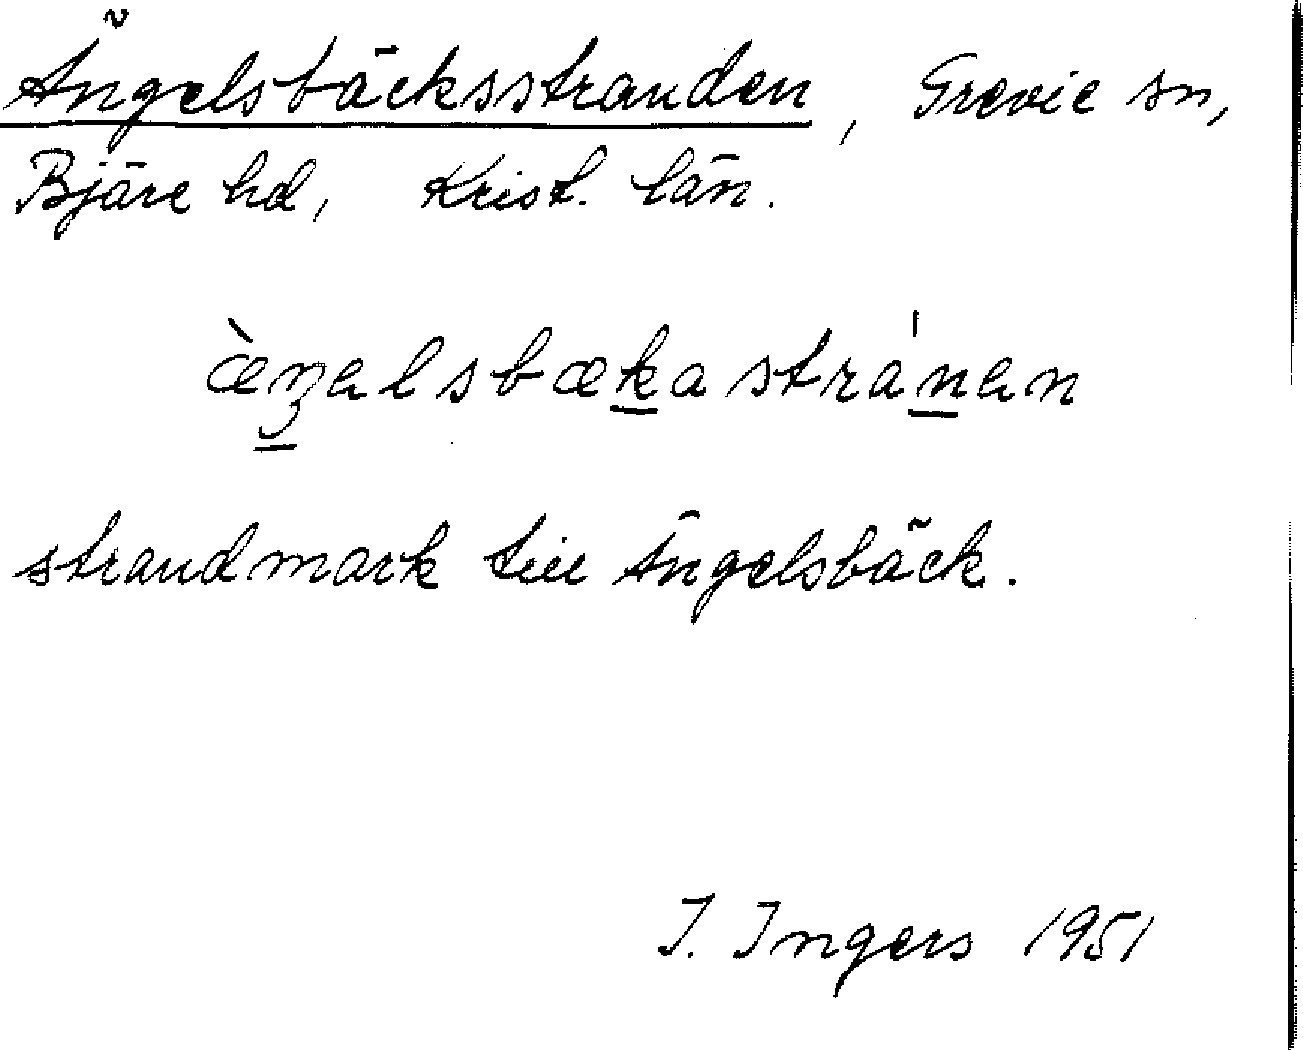 Ängelsbäcksstranden, Grevie sn,
Bjäre hd, Krist. län.
æ̀ŋ̲əlsbæk̲astrán̲ən
strandmark till Ängelsbäck.
I. Ingers 1951